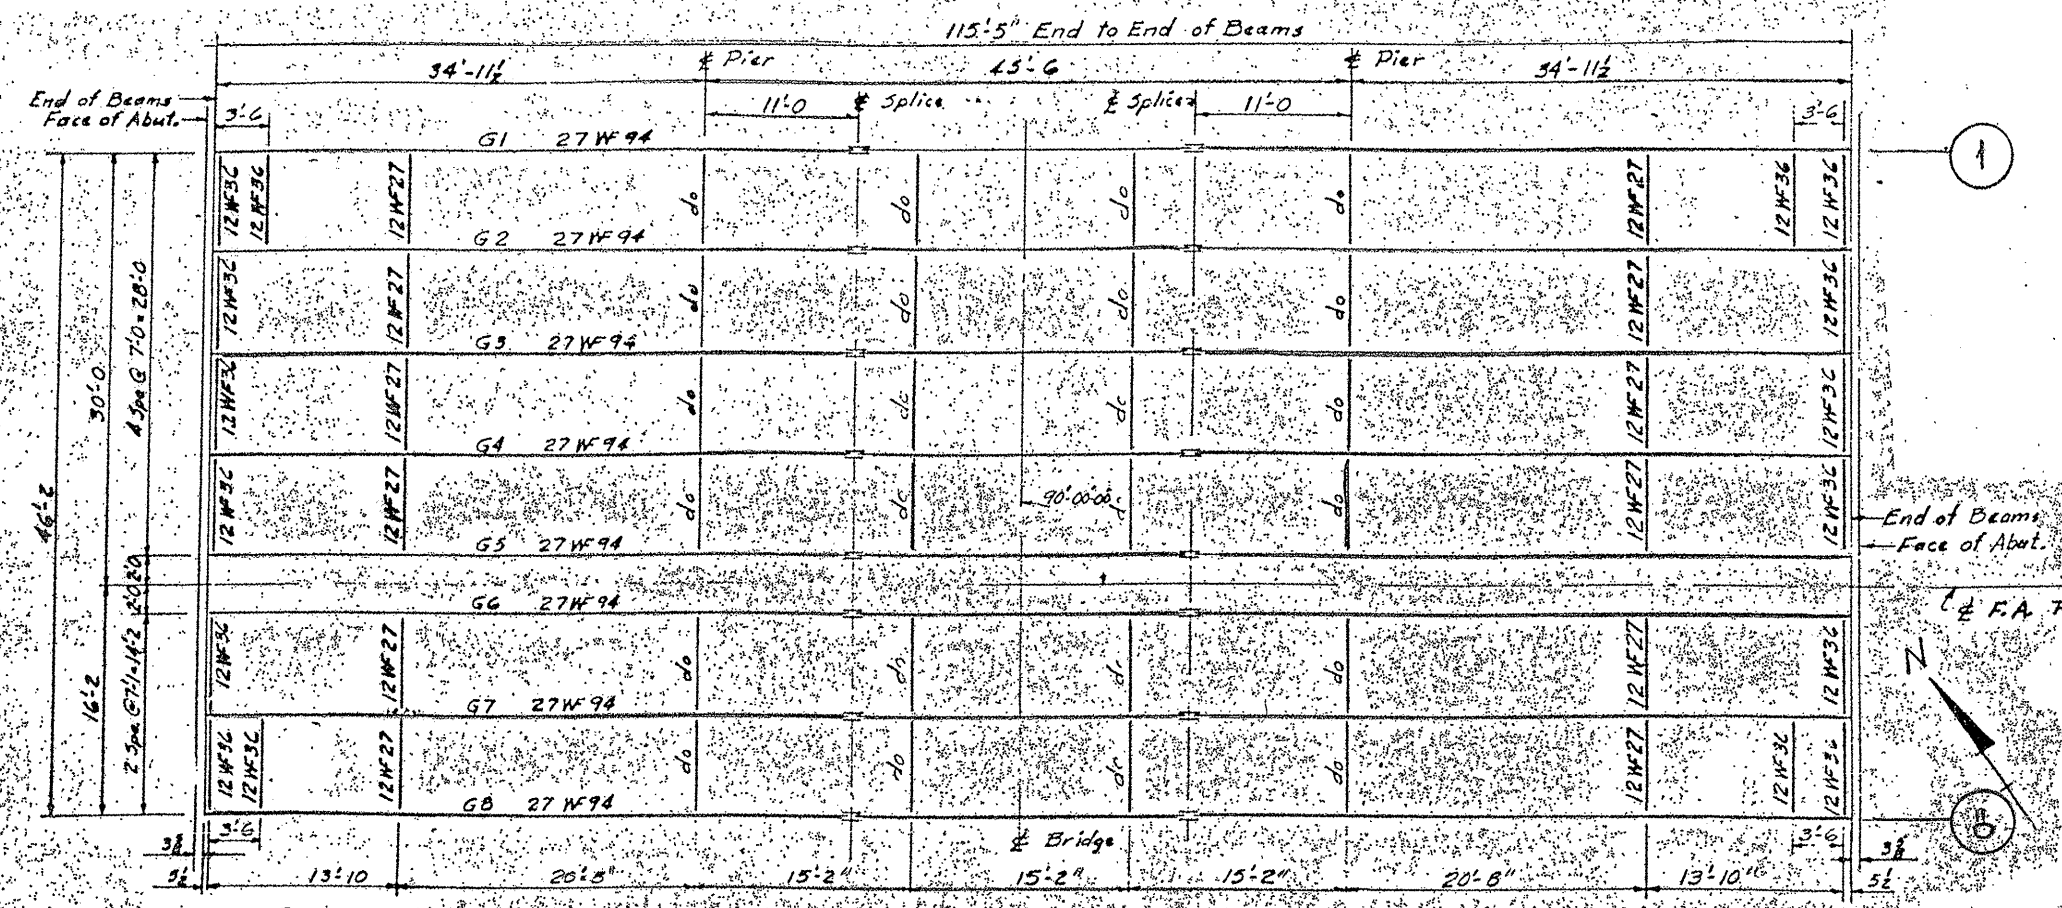 115'-5" End to End of Beams
34'-11½ ⅊ Pier 45'-6 ⅊ Pier 34'-11½
End of Beams
Face of Abut.
3'-6 11'-0 ⅊ Splice ⅊ Splice 11'-0 3'-6
G1 27 WF 94
1
12WF36 12WF36 12WF27 do do do do 12WF27 12WF36 12WF36
G2 27 WF 94
12WF36 12WF27 do do do do 12WF27 12WF36
G3 27 WF 94
12WF36 12WF27 do do do do 12WF27 12WF36
G4 27 WF 94
12WF36 12WF27 do do 90°-00'-00" do 12WF27 12WF36
G5 27 WF 94
End of Beams
Face of Abut.
46'-2
30'-0
4 Spa @ 7'-0 = 28'-0
2'-0 2'-0
16'-2
2 Spa @ 7'-1 = 14'-2
G6 27 WF 94
⅊ F.A.
N
12WF36 12WF27 do do do do 12WF27 12WF36
G7 27 WF 94
12WF36 12WF36 12WF27 do do do do 12WF27 12WF36 12WF36
G8 27 WF 94
3'-6 ⅊ Bridge 3'-6
5½ 13'-10 20'-8" 15'-2" 15'-2" 15'-2" 20'-8" 13'-10" 5½